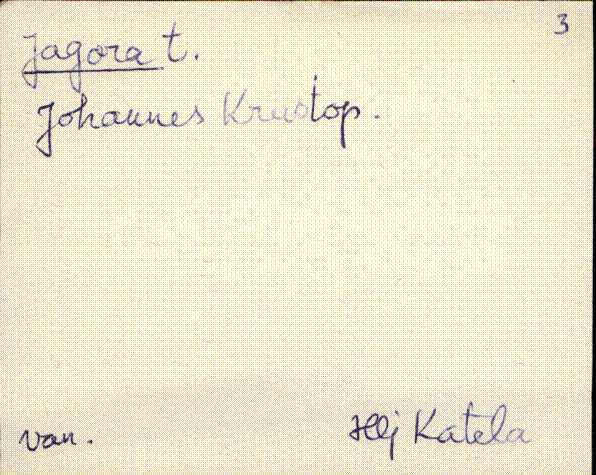 3
Jagora t.
Johannes Krustop.
van. Hlj Katela